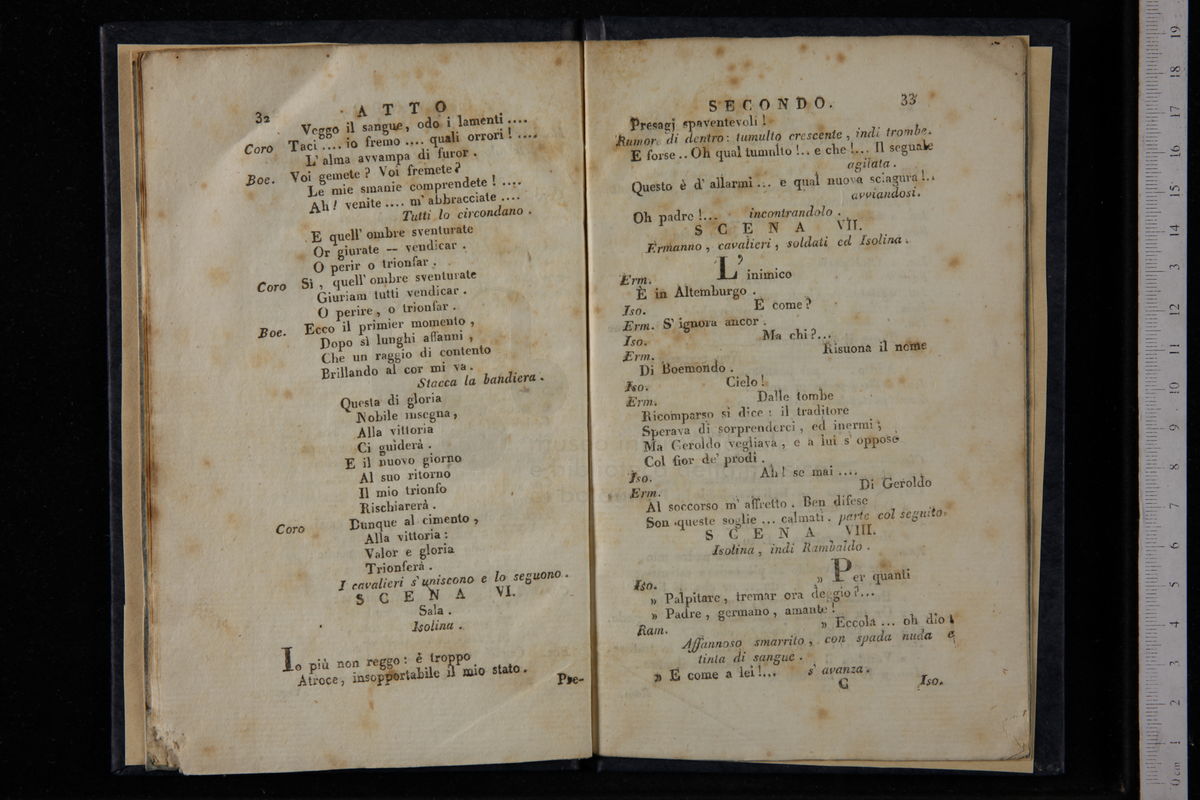 32
ATTO
Veggo il sangue, odo i lamenti ....
Coro Taci .... io fremo .... quali orrori ! ....
L' alma avvampa di furor .
Boe. Voi gemete ? Voi fremete ?
Le mie smanie comprendete ! ....
Ah ! venite .... m' abbracciate ....
Tutti lo circondano .
E quell' ombre sventurate
Or giurate -- vendicar .
O perir o trionfar .
Coro Sì , quell' ombre sventurate
Giuriam tutti vendicar .
O perire , o trionfar .
Boe. Ecco il primier momento ,
Dopo sì lunghi affanni ,
Che un raggio di contento
Brillando al cor mi va .
Stacca la bandiera .
Questa di gloria
Nobile insegna ,
Alla vittoria
Ci guiderà .
E il nuovo giorno
Al suo ritorno
Il mio trionfo
Rischiarerà .
Coro Dunque al cimento ,
Alla vittoria :
Valor e gloria
Trionferà .
I cavalieri s' uniscono e lo seguono .
SCENA VI.
Sala .
Isolina .
Io più non reggo : è troppo
Atroce , insopportabile il mio stato .
Pre-
SECONDO.
33
Presagj spaventevoli !
Rumore di dentro : tumulto crescente , indi trombe.
E forse .. Oh qual tumulto !.. e che !... Il segnale
agitata .
Questo è d' allarmi ... e qual nuova sciagura !..
avviandosi.
Oh padre !... incontrandolo .
SCENA VII.
Ermanno , cavalieri , soldati ed Isolina .
Erm. L' inimico
È in Altemburgo .
Iso. E come ?
Erm. S' ignora ancor .
Iso. Ma chi ?...
Erm. Risuona il nome
Di Boemondo .
Iso. Cielo !
Erm. Dalle tombe
Ricomparso si dice : il traditore
Sperava di sorprenderci , ed inermi ;
Ma Geroldo vegliava , e a lui s' oppose
Col fior de' prodi .
Iso. Ah ! se mai ....
Erm. Di Geroldo
Al soccorso m' affretto . Ben difese
Son queste soglie ... calmati . parte col seguito.
SCENA VIII.
Isolina , indi Rambaldo .
Iso. » Per quanti
» Palpitare , tremar ora deggio ?...
» Padre , germano , amante !
Ram. » Eccola ... oh dio !
Affannoso smarrito , con spada nuda e
tinta di sangue .
» E come a lei !... s' avanza .
C
Iso.